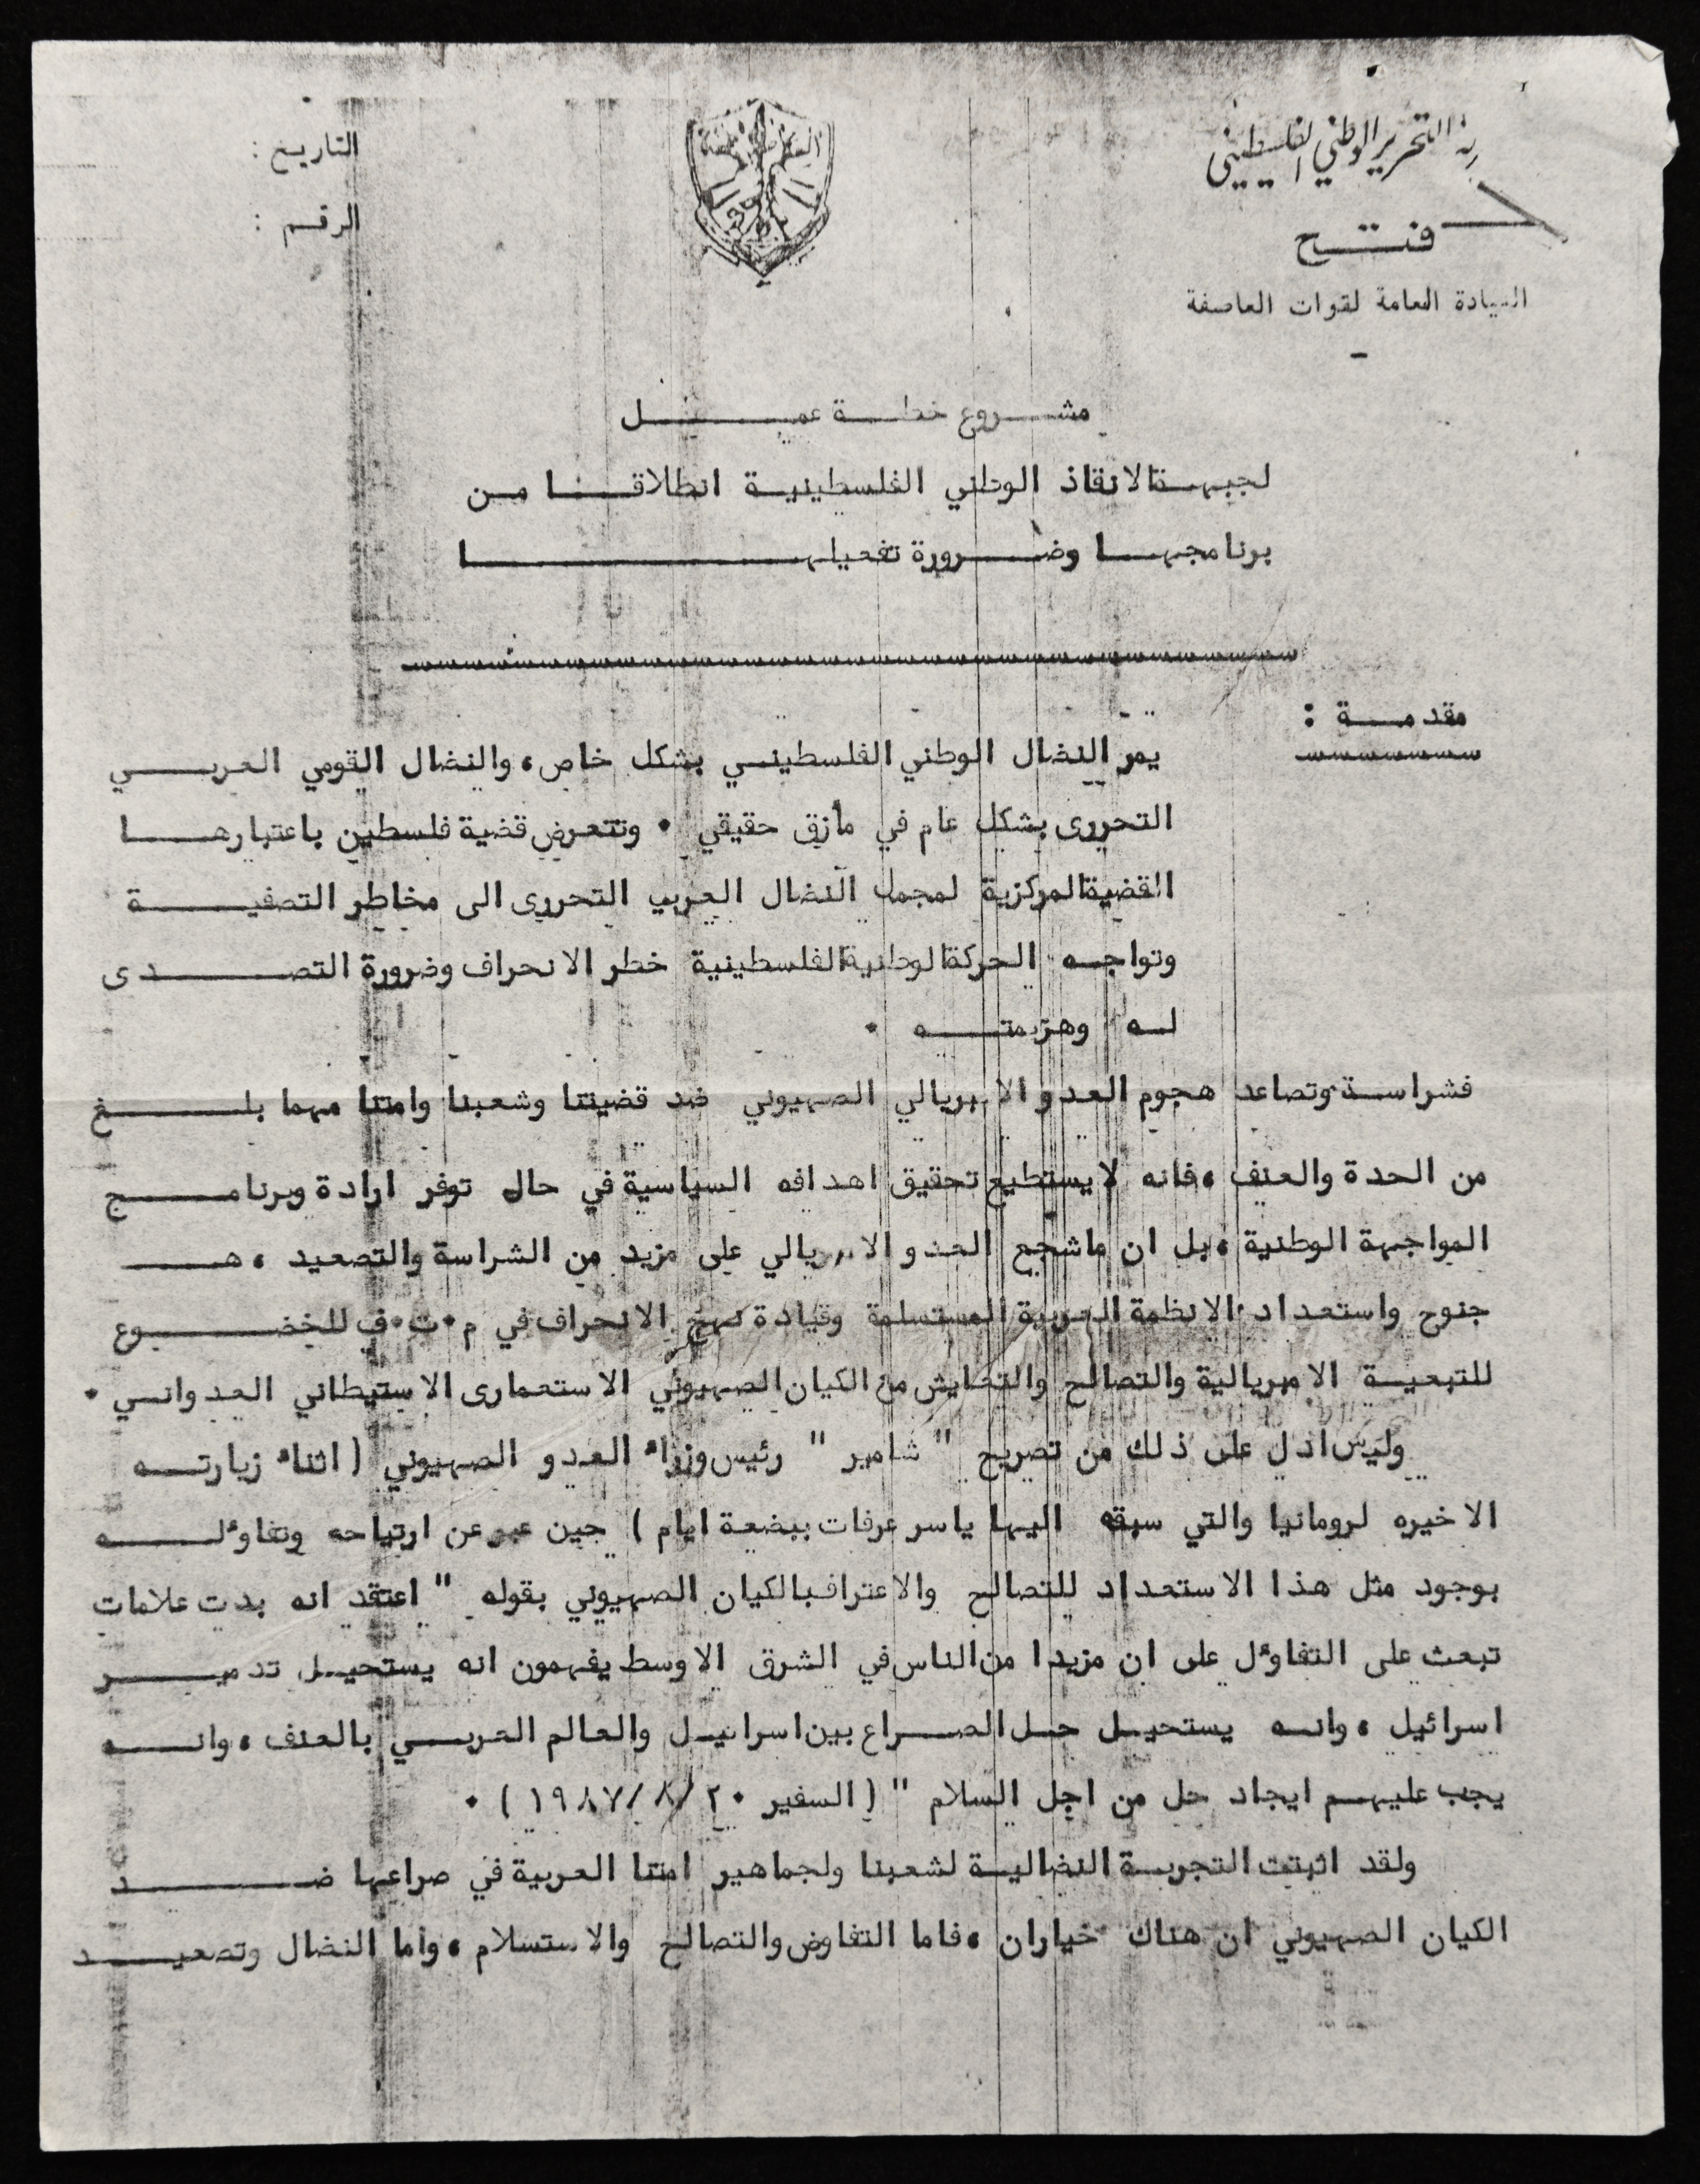 التحرير الوطني الفلسطيني
فتح
القيادة العامة لقوات العاصفة
التاريخ :
الرقم :
العاصفة
مشروع خطة عمل
لجبهة الانقاذ الوطني الفلسطينية انطلاقا من
برنامجها وضرورة تفعيلها
مقدمة :
يمر النضال الوطني الفلسطيني بشكل خاص، والنضال القومي العربي
التحررى بشكل عام في مأزق حقيقي • وتتعرض قضية فلسطين باعتبارها
القضية المركزية لمجمل النضال العربي التحررى الى مخاطر التصفية
وتواجه الحركة الوطنية الفلسطينية خطر الانحراف وضرورة التصدى
له وهزيمته •
فشراسة وتصاعد هجوم العدو الامبريالي الصهيوني ضد قضيتنا وشعبنا وامتنا مهما بلغ
من الحدة والعنف ،فانه لا يستطيع تحقيق اهدافه السياسية في حال توفر ارادة وبرنامج
المواجهة الوطنية ،بل ان ماشجع العدو الامبريالي على مزيد من الشراسة والتصعيد ، هـ
جنوح واستعداد الانظمة العربية المستسلمة وقيادة نهج الانحراف في م•ت•ف للخضوع
للتبعية الامبريالية والتصالح والتعايش مع الكيان الصهيوني الاستعمارى الاستيطاني العدواني •
وليس ادل على ذلك من تصريح " شامير " رئيس وزراء العدو الصهيوني ( اثناء زيارته
الاخيره لرومانيا والتي سبقه اليها ياسر عرفات ببضعة ايام ) حين عبر عن ارتياحه وتفاؤله
بوجود مثل هذا الاستعداد للتصالح والاعتراف بالكيان الصهيوني بقوله " اعتقد انه بدت علامات
تبعث على التفاؤل على ان مزيدا من الناس في الشرق الاوسط يفهمون انه يستحيل تدمير
اسرائيل ، وانه يستحيل حل الصراع بين اسرائيل والعالم العربي بالعنف ، وانه
يجب عليهم ايجاد حل من اجل السلام " ( السفير ٢٠/٨/١٩٨٧ ) •
ولقد اثبتت التجربة النضالية لشعبنا ولجماهير امتنا العربية في صراعها ضد
الكيان الصهيوني ان هناك خياران ،فاما التفاوض والتصالح والاستسلام ، واما النضال وتصعيد